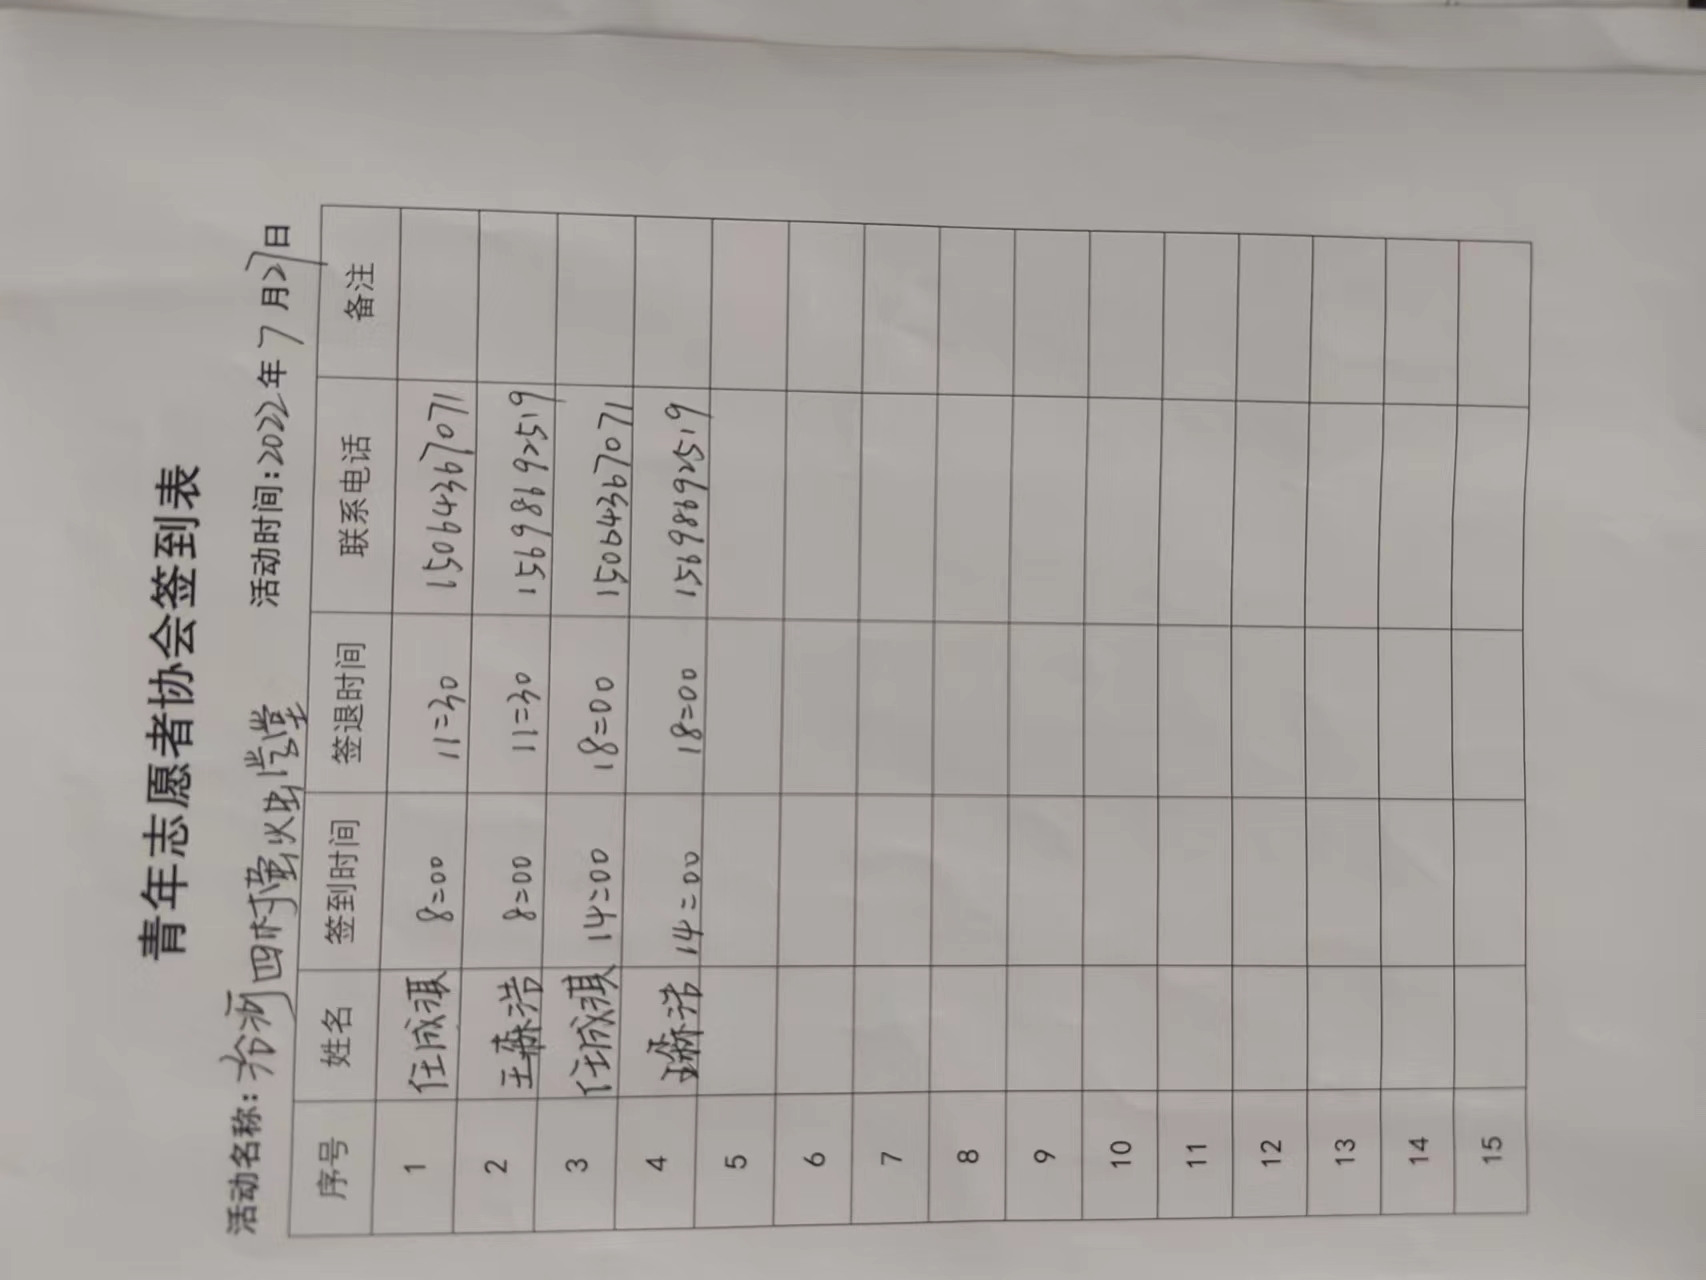 青年志愿者协会签到表
活动名称：沿河四村萤火虫学堂 活动时间：2022年7月27日
序号 姓名 签到时间 签退时间 联系电话 备注
1 任成琪 8:00 11:30 15064367071
2 王森浩 8:00 11:30 15698692519
3 任成琪 14:00 18:00 15064367071
4 王森浩 14:00 18:00 15698692519
5
6
7
8
9
10
11
12
13
14
15